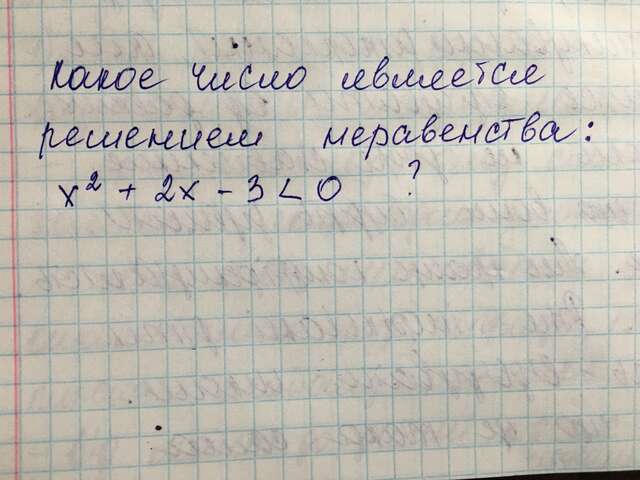 Какое число является
решением неравенства:
x² + 2x - 3 < 0 ?